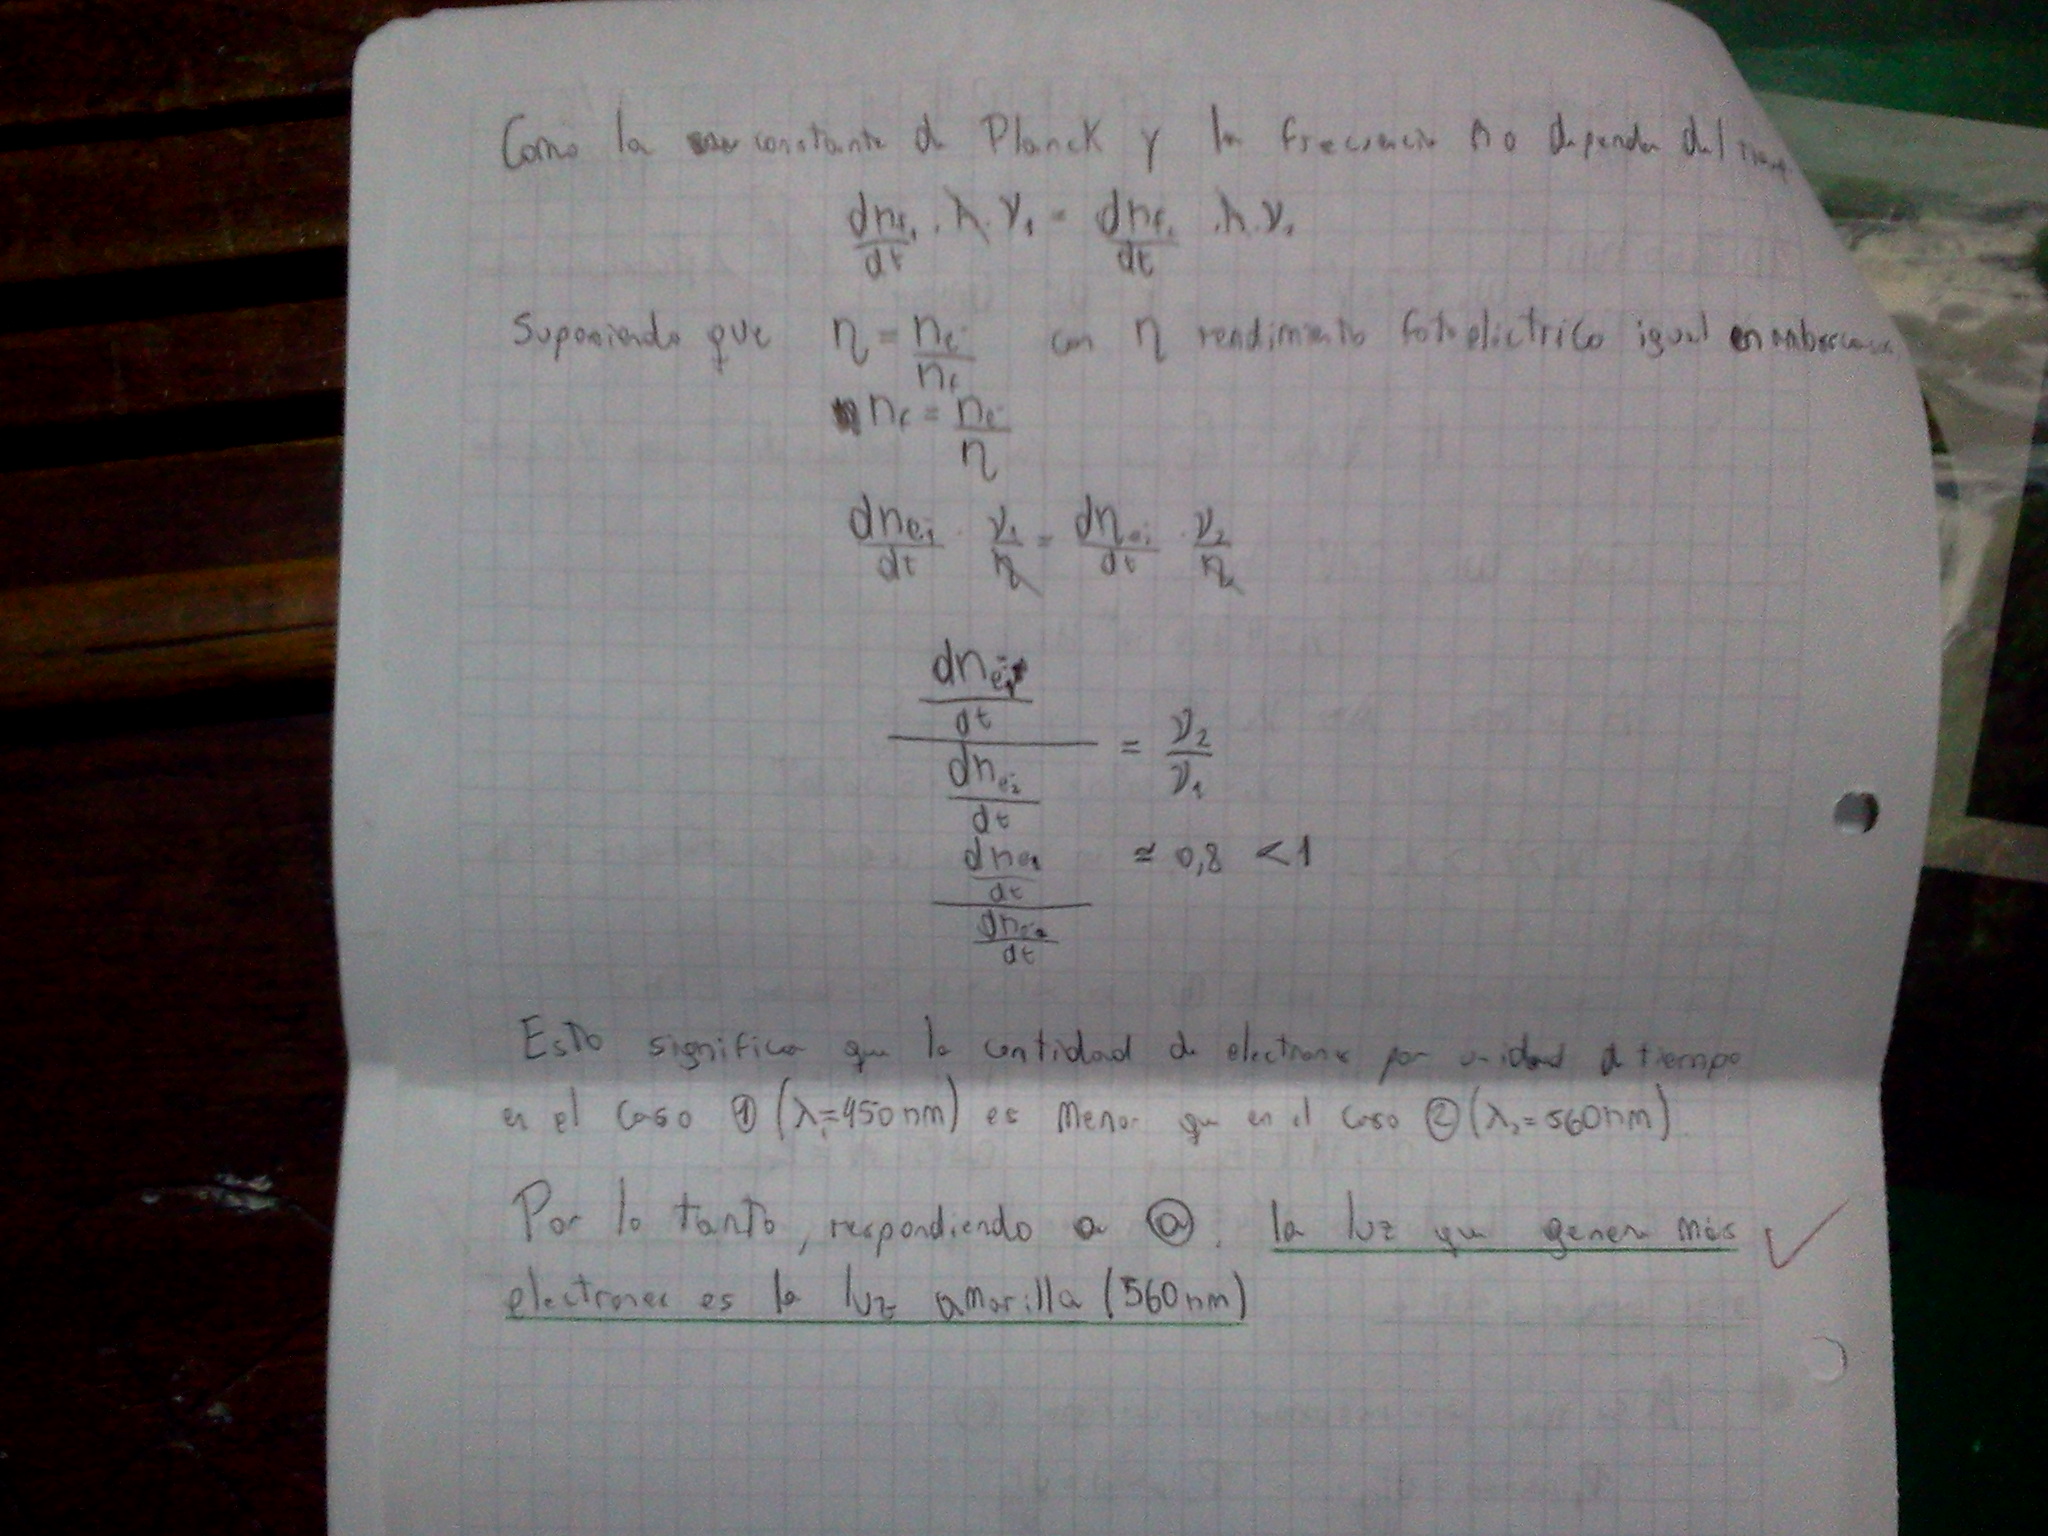 Como la constante de Planck y la frecuencia no depende del
dnf₁/dt . h . ν₁ = dnf₂/dt . h . ν₂
Suponiendo que η = ne⁻/nf con η rendimiento fotoeléctrico igual en ambos casos
nf = ne⁻/η
dne⁻₁/dt . ν₁/η = dne⁻₂/dt . ν₂/η
(dne⁻₁/dt)/(dne⁻₂/dt) = ν₂/ν₁
(dne₁/dt)/(dne₂/dt) ≃ 0,8 < 1
Esto significa que la cantidad de electrones por unidad de tiempo
en el caso ① (λ₁=450nm) es menor que en el caso ② (λ₂=560nm)
Por lo tanto, respondiendo a ⓐ, la luz que genera más
electrones es la luz amarilla (560nm)